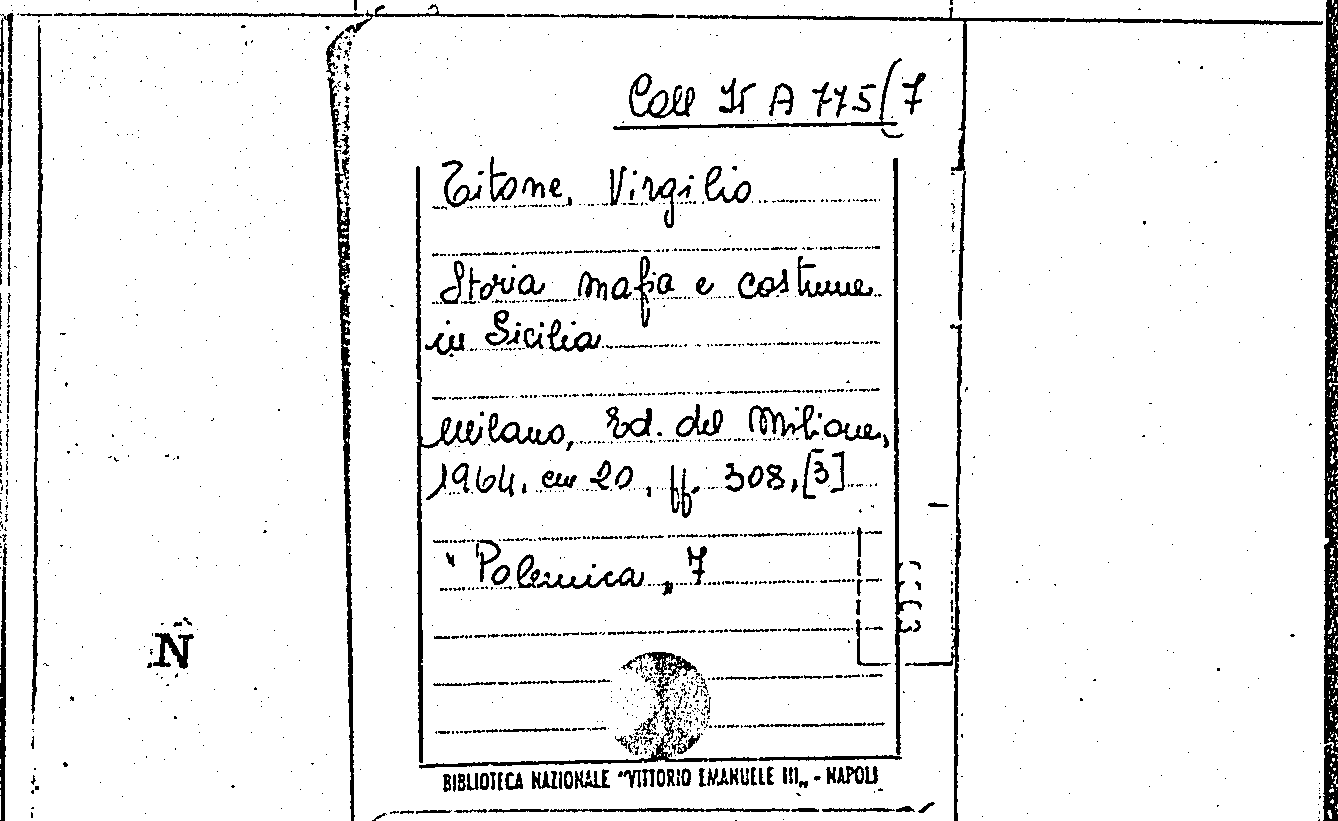 Coll It A 775/7
Titone, Virgilio
Storia mafia e costume
in Sicilia
Milano, Ed. del Milione,
1964, cm 20, pp. 308, [3]
"Polemica„ 7
N
BIBLIOTECA NAZIONALE "VITTORIO EMANUELE III„ - NAPOLI